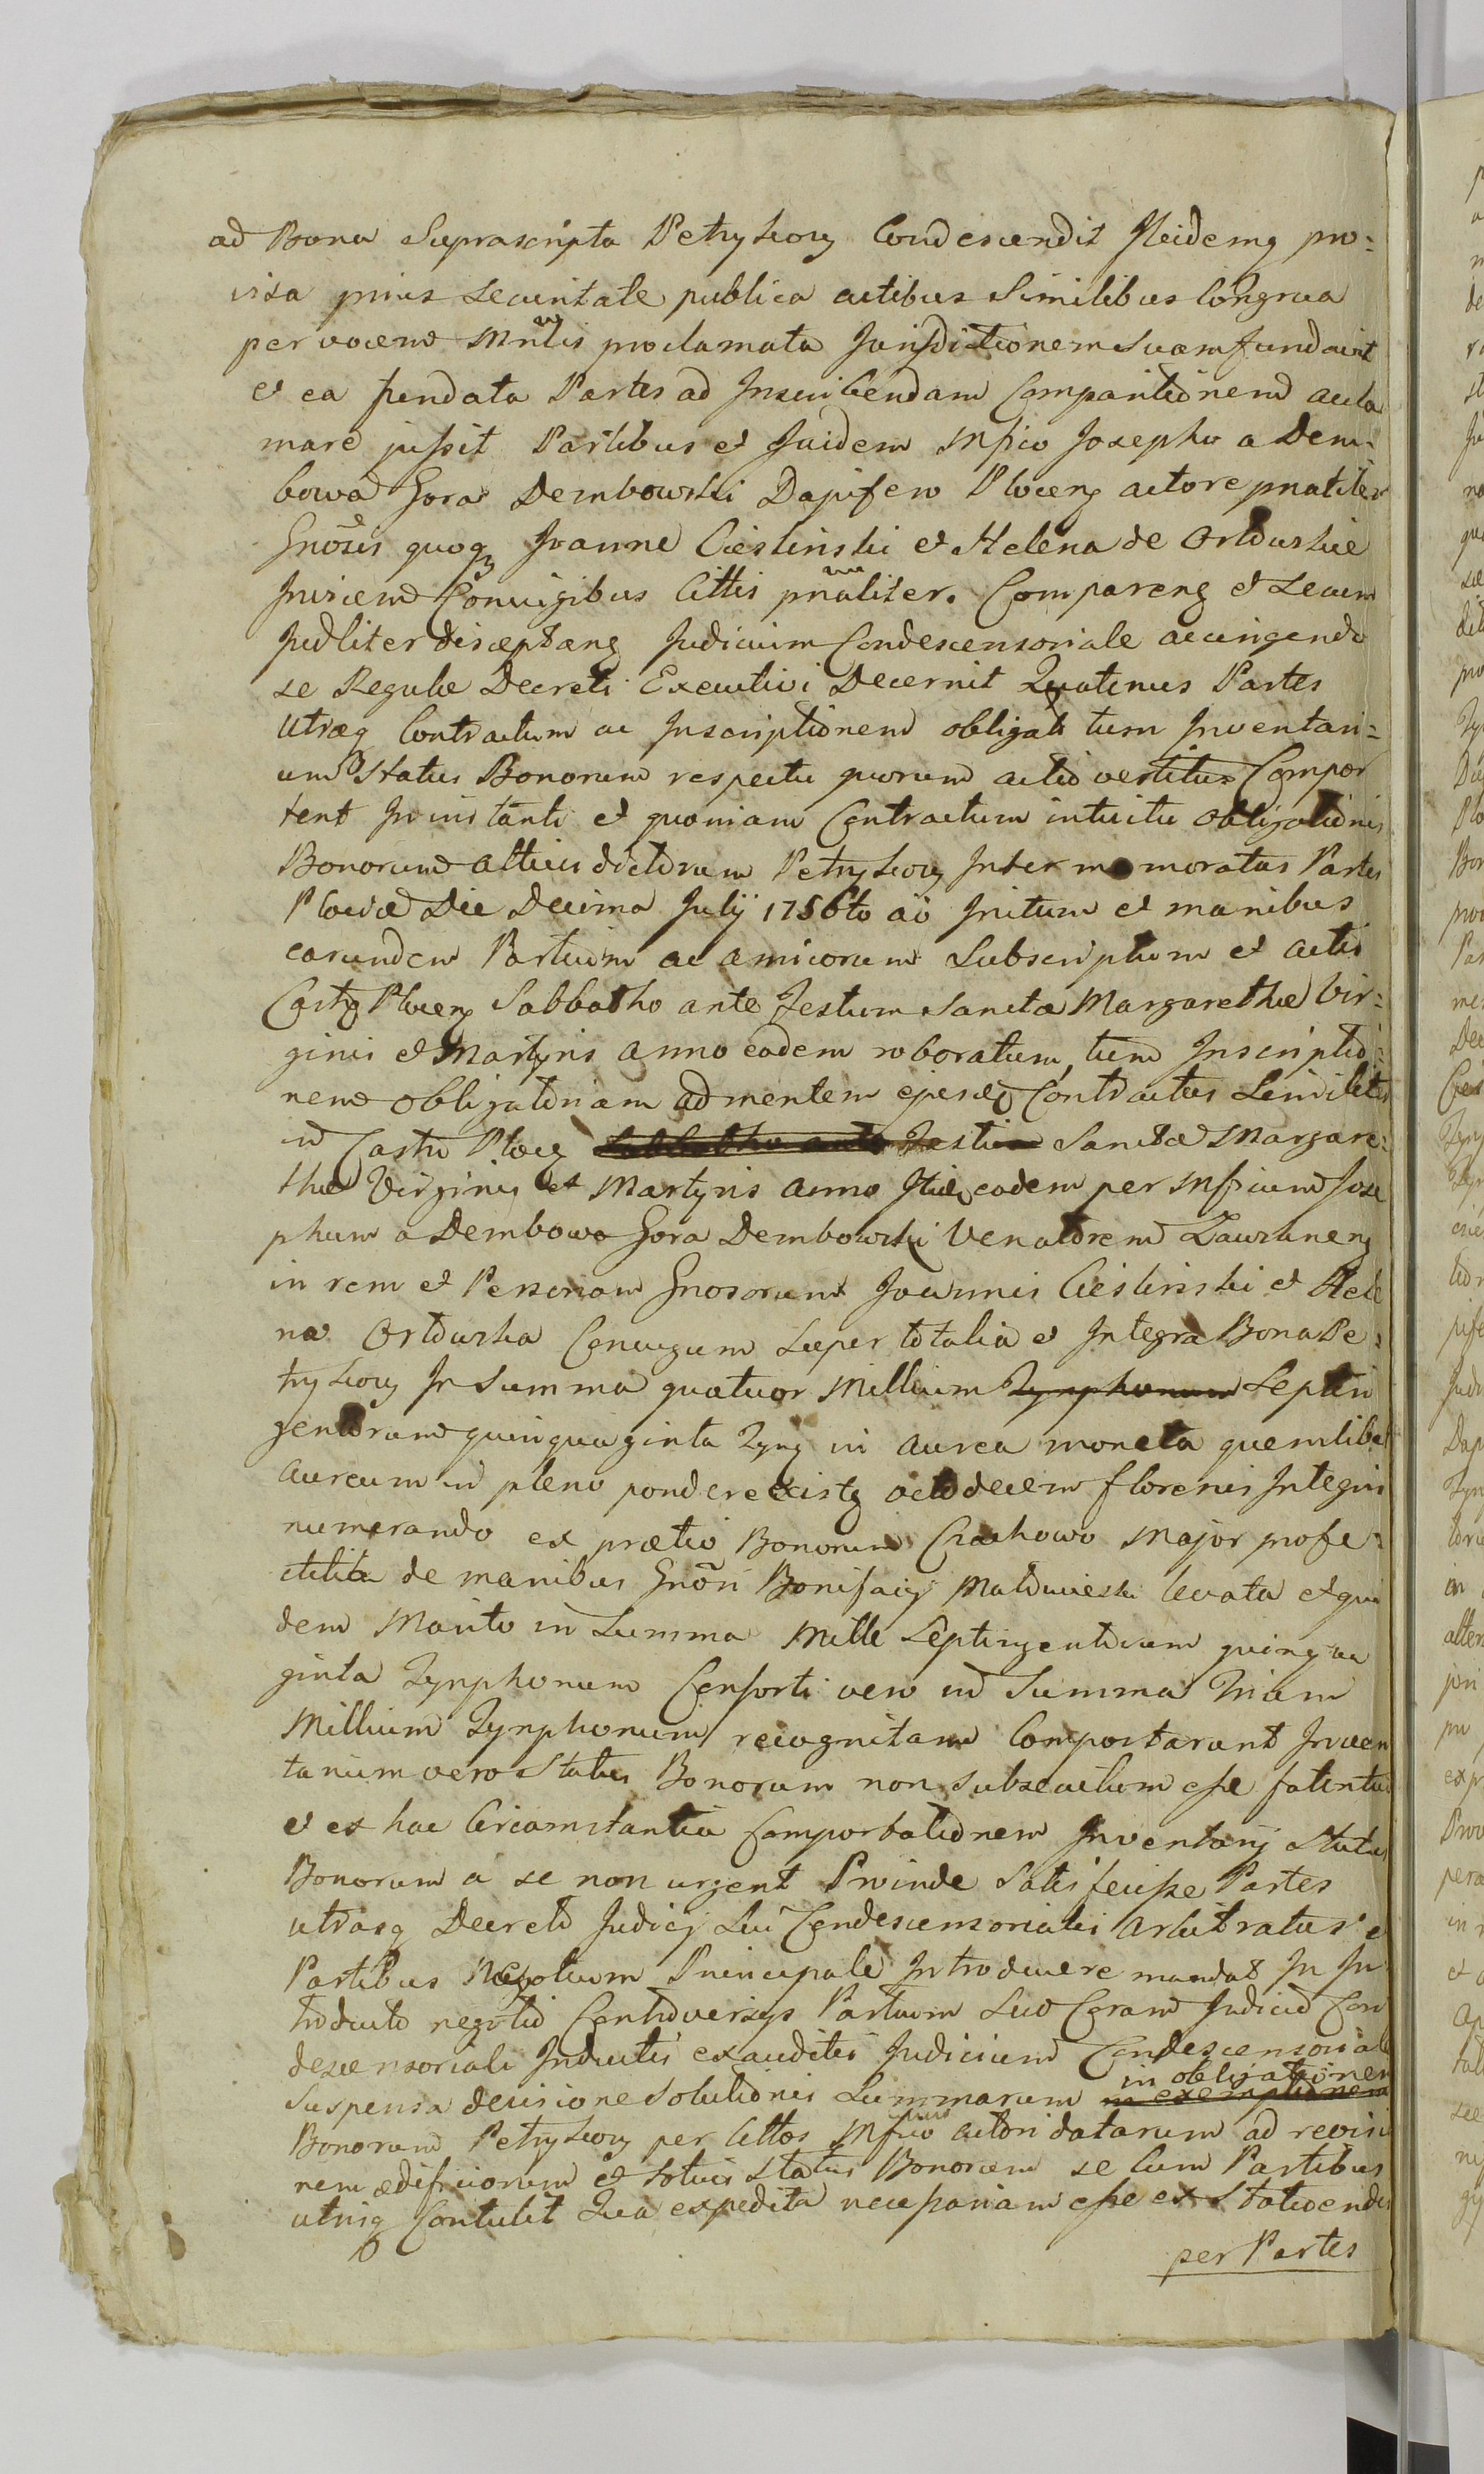 ad Bona Suprascripta Petrykowy Condescendit Ibidemq pro:
visa prius securitate publica actibus Similibus Congrua
per vocem Mnlis proclamata Jurisdictionem Suam fundavit
et ea fundata Partes ad Inscribendam Comparitionem acla
mare jussit Partibus et quidem Mfico Josepho a Dem:
bowa Gora Dembowski Dapifero Plocenq actore pnaliter
Gnosis quoq Joanne Cieslinski et Helena de Ortowskie
Invicem Conjugibus Cittis pnaliter. Comparenq et Secum
Judliter disceptanq Judicium Condescensoriale accingendo
se Regulae Decreti Executivi Decernit Quatenus Partes
Utraeq Contractum ac Inscriptionem obligat tum Inventari:
um Status Bonorum respectu quorum actio vertitur Compor
tent In instanti et quoniam Contractum intuitu obligationis
Bonorum attius dictorum Petrykowy Inter memoratas Partes
Plociae Die Decima Julij 1756to ao Initum et manibus
earundem Partium ac amicorum Subscriptum et actis
Castrq Plocenq Sabbatho ante Festum Sanctae Margarethae Vir:
ginis et Martyris anno eodem roboratum, tum Inscriptio:
nem obligatoriam ad mentem ejusdq Contractus Similiter
in Castro Plocq Sabbatho ante Festum Sanctae Margare:
thae Virginis et Martyris anno eodem per Mficum Jose
phum a Dembowa Gora Dembowski Venatorem Zawskrnenq
in rem et Personam Gnosorum Joannis Cieslinski et Hele
na Ortowska Conjugum Super totalia et Integra Bona Pe:
trykowy In Summa quatuor Millium Tynphonum Septin
gentorum quinquaginta Tynq in aurea moneta quemlibet
aureum in pleno pondere existq octodecem florenis Integris
numerando ex praetio Bonorum Czachowo Major profe:
ctitia de manibus Gnosi Bonifacij Maldwieski levata et qui
dem Marito in Summa Mille Septingentorum quinqua
ginta Tynphonum Consorti vero in Summa Trium
Millium Tynphonum recognitam Comportarunt Inven
tarium vero Status Bonorum non subsecutum esse fatentur
et ex hac Circumstantia Comportationem Inventarij Status
Bonorum a se non urgent Proinde Satisfecisse Partes
utrasq Decreto Judicij Sui Condescensorialis arbitratus e
Partibus Negotium Principale Introducere mandat In In
troducto negotio Controversijs Partium Suo Coram Judicio Con
descensoriali Inductis exauditis Judicium Condescensoriale
Suspensa decisione Solutionis Summarum in exemptionem in obligationem
Bonorum Petrykowy per Cittos Mfico actori datarum ad revisio
nem aedificiorum et totius Status Bonorum se Cum Partibus
utrisq Contulit Qua expedita necessariam esse ex Statuendis
per Partes